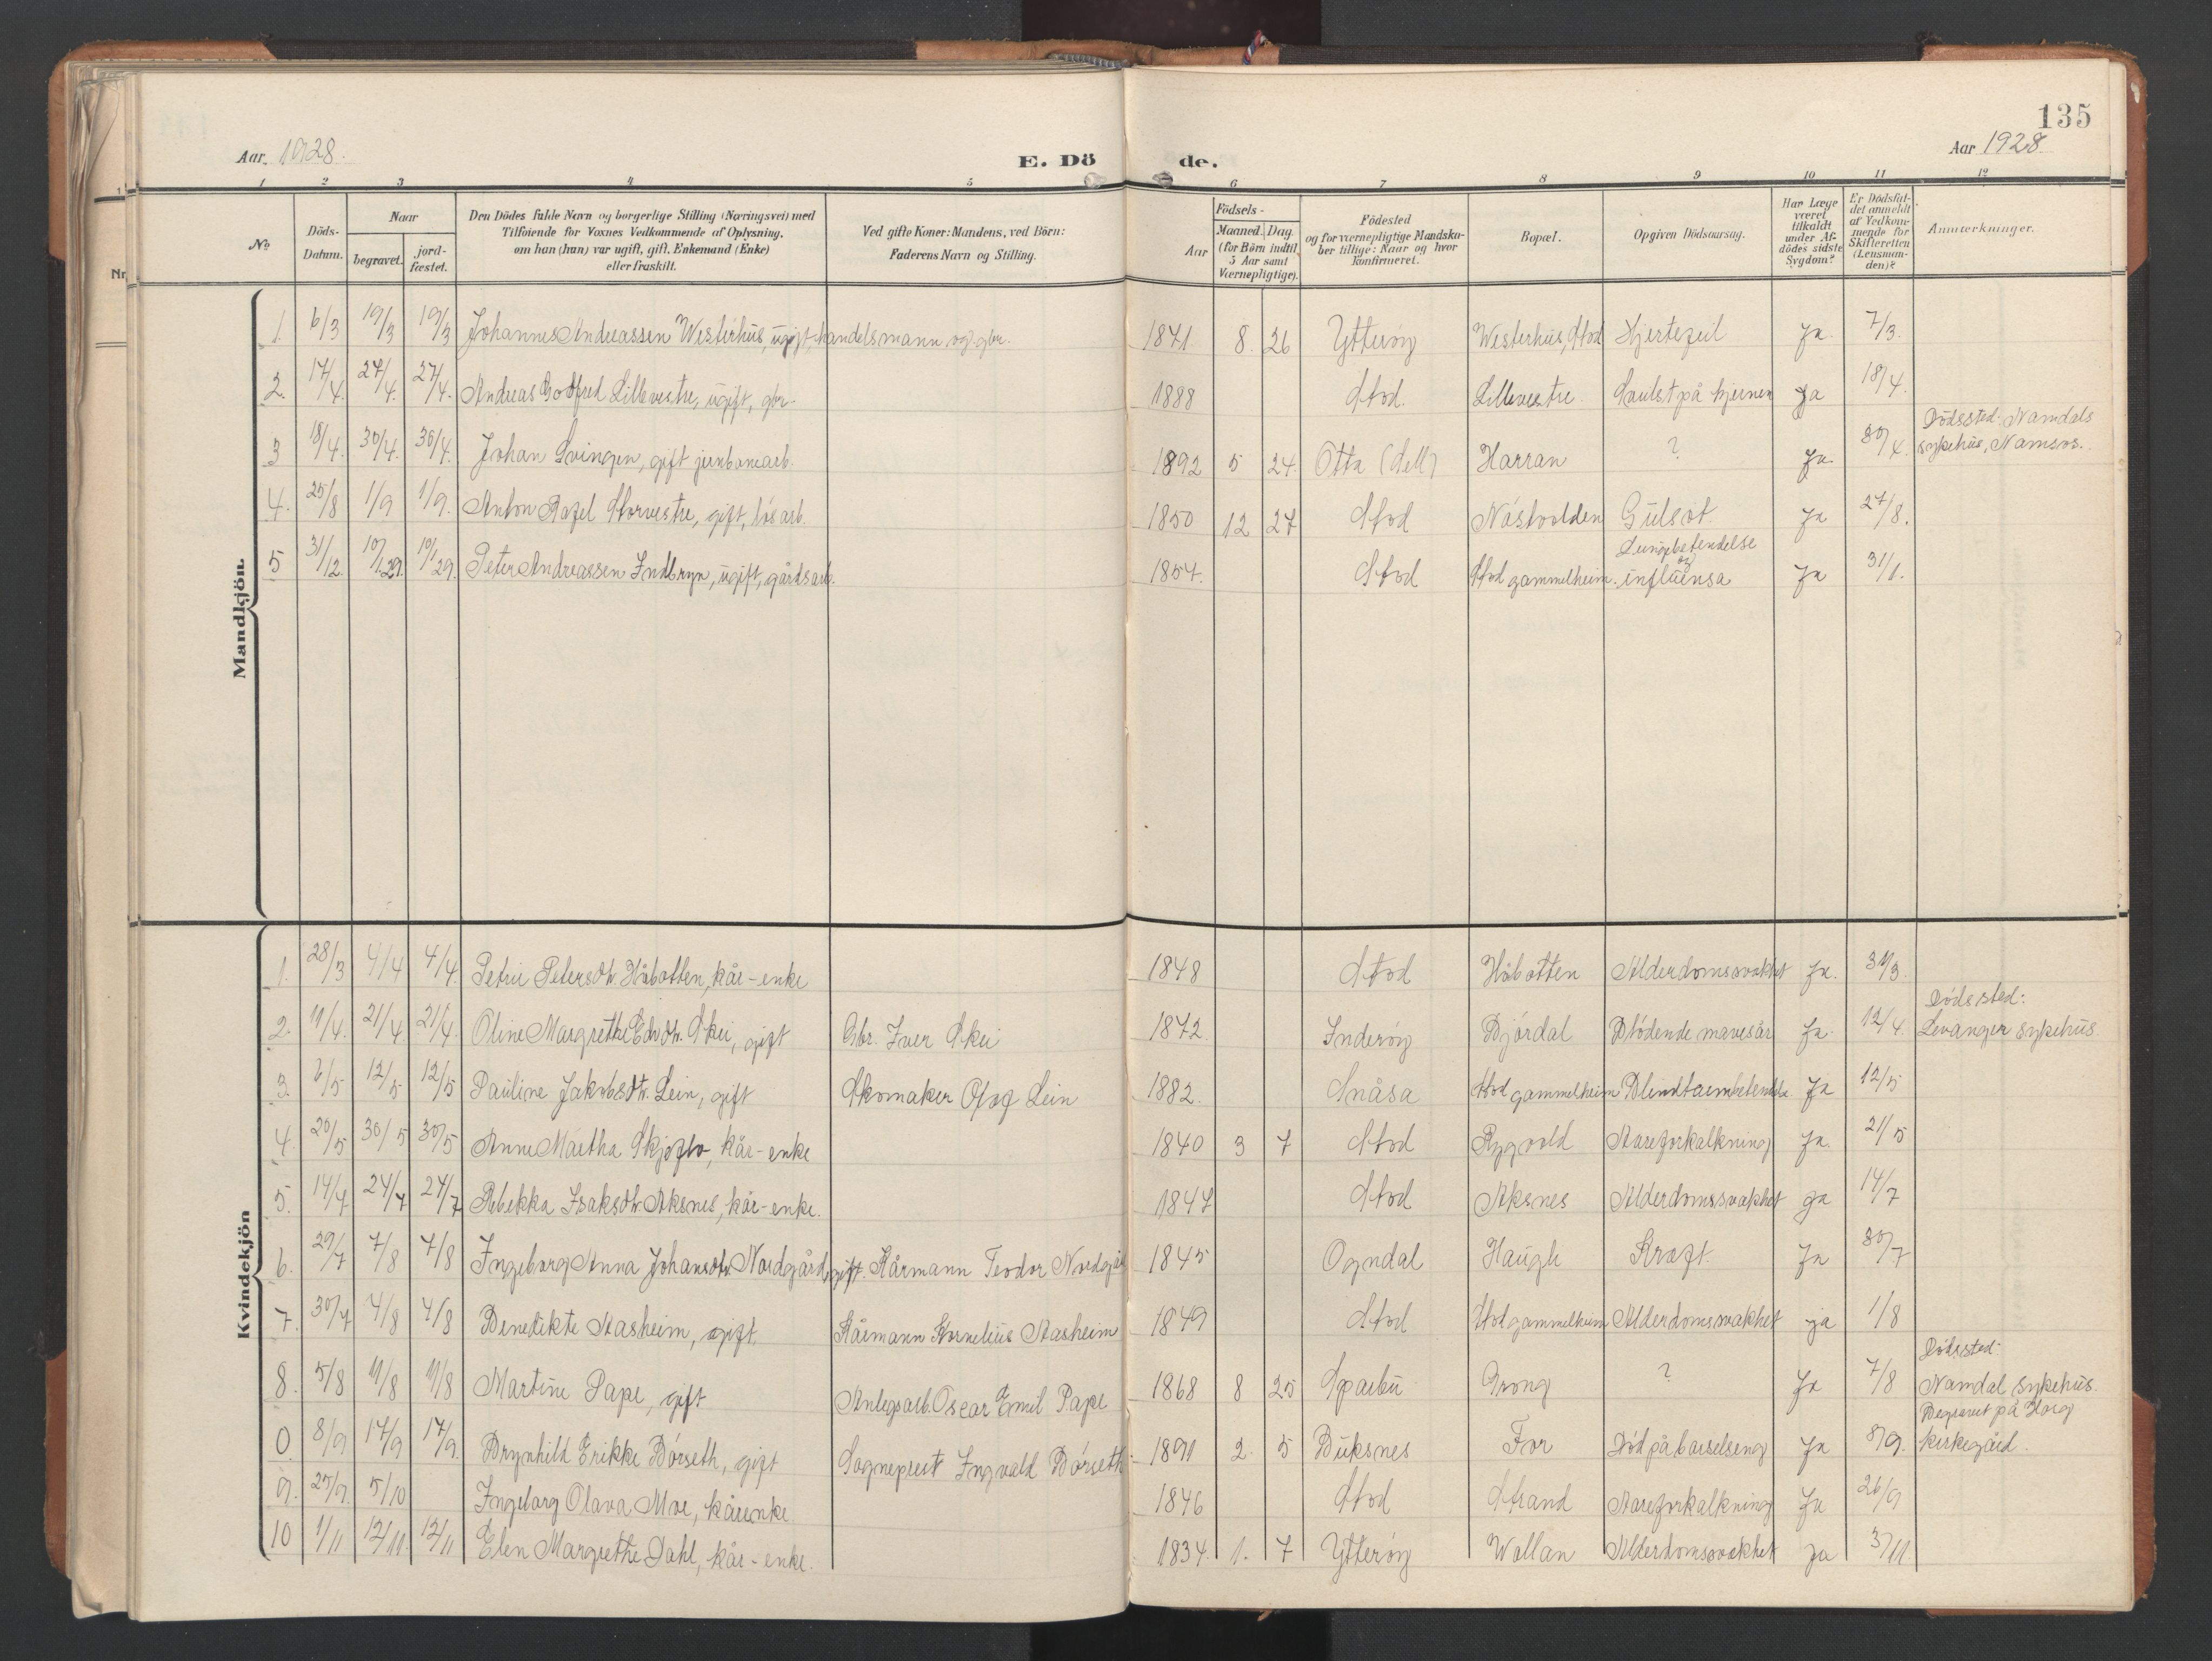 135
Aar. 1928.
E. Dö de.
Aar 1928.
1 2 3 4 5 6 7 8 9 10 11 12
No
Döds-Datum.
Naar
begravet.
jord-fæstet.
Den Dödes fulde Navn og borgerlige Stilling (Næringsvei) med
Tilföiende for Voxnes Vedkommende af Oplysning,
om han (hun) var ugift, gift, Enkemand (Enke)
eller fraskilt.
Ved gifte Koner: Mandens, ved Börn:
Faderens Navn og Stilling.
Födsels-
Aar
Maaned. Dag.
(for Börn indtil
5 Aar samt
Værnepligtige).
Födested
og for værnepligtige Mandska-
ber tillige: Naar og hvor
konfirmeret.
Bopæl.
Opgiven Dödsaarsag.
Har Læge
været
tilkaldt
under Af-
dödes sidste
Sygdom?
Er Dödsfal-
det anmeldt
af Vedkom-
mende for
Skifteretten
(Lensman-
den)?
Anmærkninger.
Nr
Mandkjön.
1. 6/3 19/3 19/3 Johannes Andreassen Westerhus, ugift, handelsmann og gbr. 1841. 8. 26 Ytterøy Westerhus, Stod Hjertefeil Ja. 7/3.
2. 17/4. 27/4. 27/4. Andreas Godtfred Lillevestre, ugift, gbr. 1888 Stod. Lillevestre. Svulst på hjernen Ja 18/4.
3 18/4. 30/4. 30/4. Johan Svingen, gift jernbanearb. 1892 5 24. Otta (Sell) Harran ? Ja. 30/4. Dødssted: Namdals
sykehus, Namsos.
4. 25/8 1/9 1/9. Anton Storvestre, gift, løsarb. 1850 12 27 Stod Nåstvolden Gulsot Ja 27/8.
5 31/12. 10/1 29. 10/1 29. Peter Andreassen Indbryn, ugift, gårdsarb. 1854. Stod Stod gammelheim. Lungebetendelse
og
influensa Ja 31/1.
Kvindekjön
1. 28/3 4/4 4/4. Petrie Petersdtr. Håbotten, kår-enke 1848 Stod Håbotten Alderdomssvakhet Ja. 31/3.
2. 11/4. 21/4. 21/4. Oline Margrethe Edv.dtr. Skei, gift Gbr. Iver Skei 1872. Inderøy Bjórdal Blødende mavesår Ja. 12/4. Dødssted:
Levanger sykehus
3. 6/5 12/5 12/5 Pauline Jakobsdtr. Lein, gift Skomaker Olaf Lein 1882. Snåsa Stod gammelheim Blindtarmbetendelse Ja 12/5
4. 20/5 30/5 30/5 Anne Martha kår-enke 1840 3 7 Stod Rygvold Aareforkalkning Ja. 21/5
5. 14/7 24/7 24/7 Rebekka Isaksdtr. Aksnes, kår-enke. 1847 Stod Aksnes Alderdomssvakhet ja 14/7
6. 29/7 7/8 7/8 Ingeborg Anna Johansdtr. Nordgård, gift. Kårmann Teodor Nordgård 1845 Ogndal Haugli Kræft. Ja 30/7
7. 30/7 4/8 4/8 Benedikte Aasheim, gift. Kårmann Kornelius Aasheim 1849 Stod Stod gammelheim Alderdomssvakhet ja 1/8
8. 5/8 11/8 11/8 Martine Pape, gift Anlegsarb. Oscar Emil Pape 1868 8 25 Sparbu Grong ? Ja 7/8 Dødssted:
Namdal sykehus.
0 8/9 17/9 17/9. Brynhild Erikke Bórseth, gift Sogneprest Ingvald Bórseth 1891 2. 5 Buksnes For Død på barselseng Ja 8/9. Begravet på Horg
kirkegård.
9. 25/9. 5/10 Ingeborg Olava Moe, kårenke 1846 Stod Strand Aareforkalkning Ja 26/9
10 1/11 12/11. 12/11 Elen Margrethe Dahl, kår-enke. 1834. 1. 7 Ytterøy Wollan Alderdomssvakhet Ja 3/11.